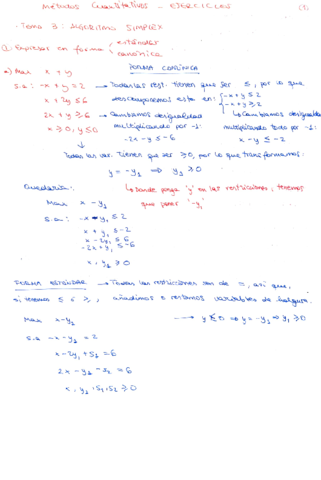 MÉTODOS CUANTITATIVOS - EJERCICIOS (1)
· Tema 3: ALGORITMO SIMPLEX
Q. Expresar en forma estándar canónica
a) Max x + y FORMA CANÓNICA
s.a: -x + y = 2 → Todas las rest. tienen que ser ≤, por lo que
x + 2y ≤ 6 desconponemos esta en: -x + y ≤ 2
-x + y ≥ 2
2x + y ≥ 6 → Cambiamos desigualdad ↳ Cambiamos desigualdad
x ≥ 0, y ≤ 0 multiplicando por -1: multiplicando todo por -1:
-2x - y ≤ -6 x - y ≤ -2
↳ Todas las var. tienen que ser ≥ 0, por lo que transformamos:
y = -y₁ ⇒ y₁ ≥ 0
Quedaría: ↳ Donde ponga 'y' en las restricciones, tenemos
Max x - y₁ que poner '-y₁'
s.a: -x - y₁ ≤ 2
x + y₁ ≤ -2
x - 2y₁ ≤ 6
-2x + y₁ ≤ -6
x, y₁ ≥ 0
FORMA ESTÁNDAR → Todas las restricciones son de =, así que,
si tenemos ≤ ó ≥, añadimos o restamos variables de holgura.
Max x - y₁ → y ≤ 0 ⇒ y = -y₁ ⇒ y₁ ≥ 0
s.a -x - y₁ = 2
x - 2y₁ + s₁ = 6
2x - y₁ - s₂ = 6
x, y₁, s₁, s₂ ≥ 0